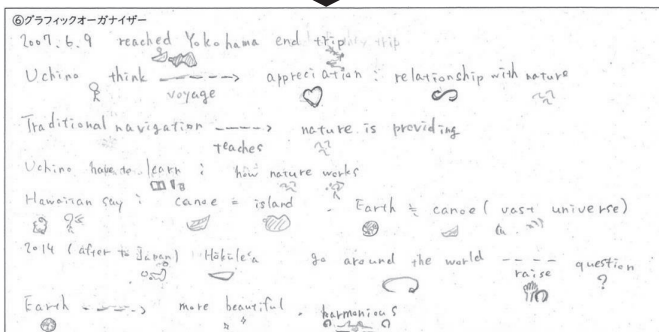 ⑥グラフィックオーガナイザー
2007.6.9 reached Yokohama end trip trip
Uchino think ----> appreciation : relationship with nature
voyage
Traditional navigation ----> nature is providing
teaches
Uchino have to learn : how nature works
Hawaiian say : canoe = island . Earth ≒ canoe ( vast universe)
2014 (after to Japan) Hōkūle'a go around the world ---- question
raise ?
Earth ----> more beautiful . harmonious